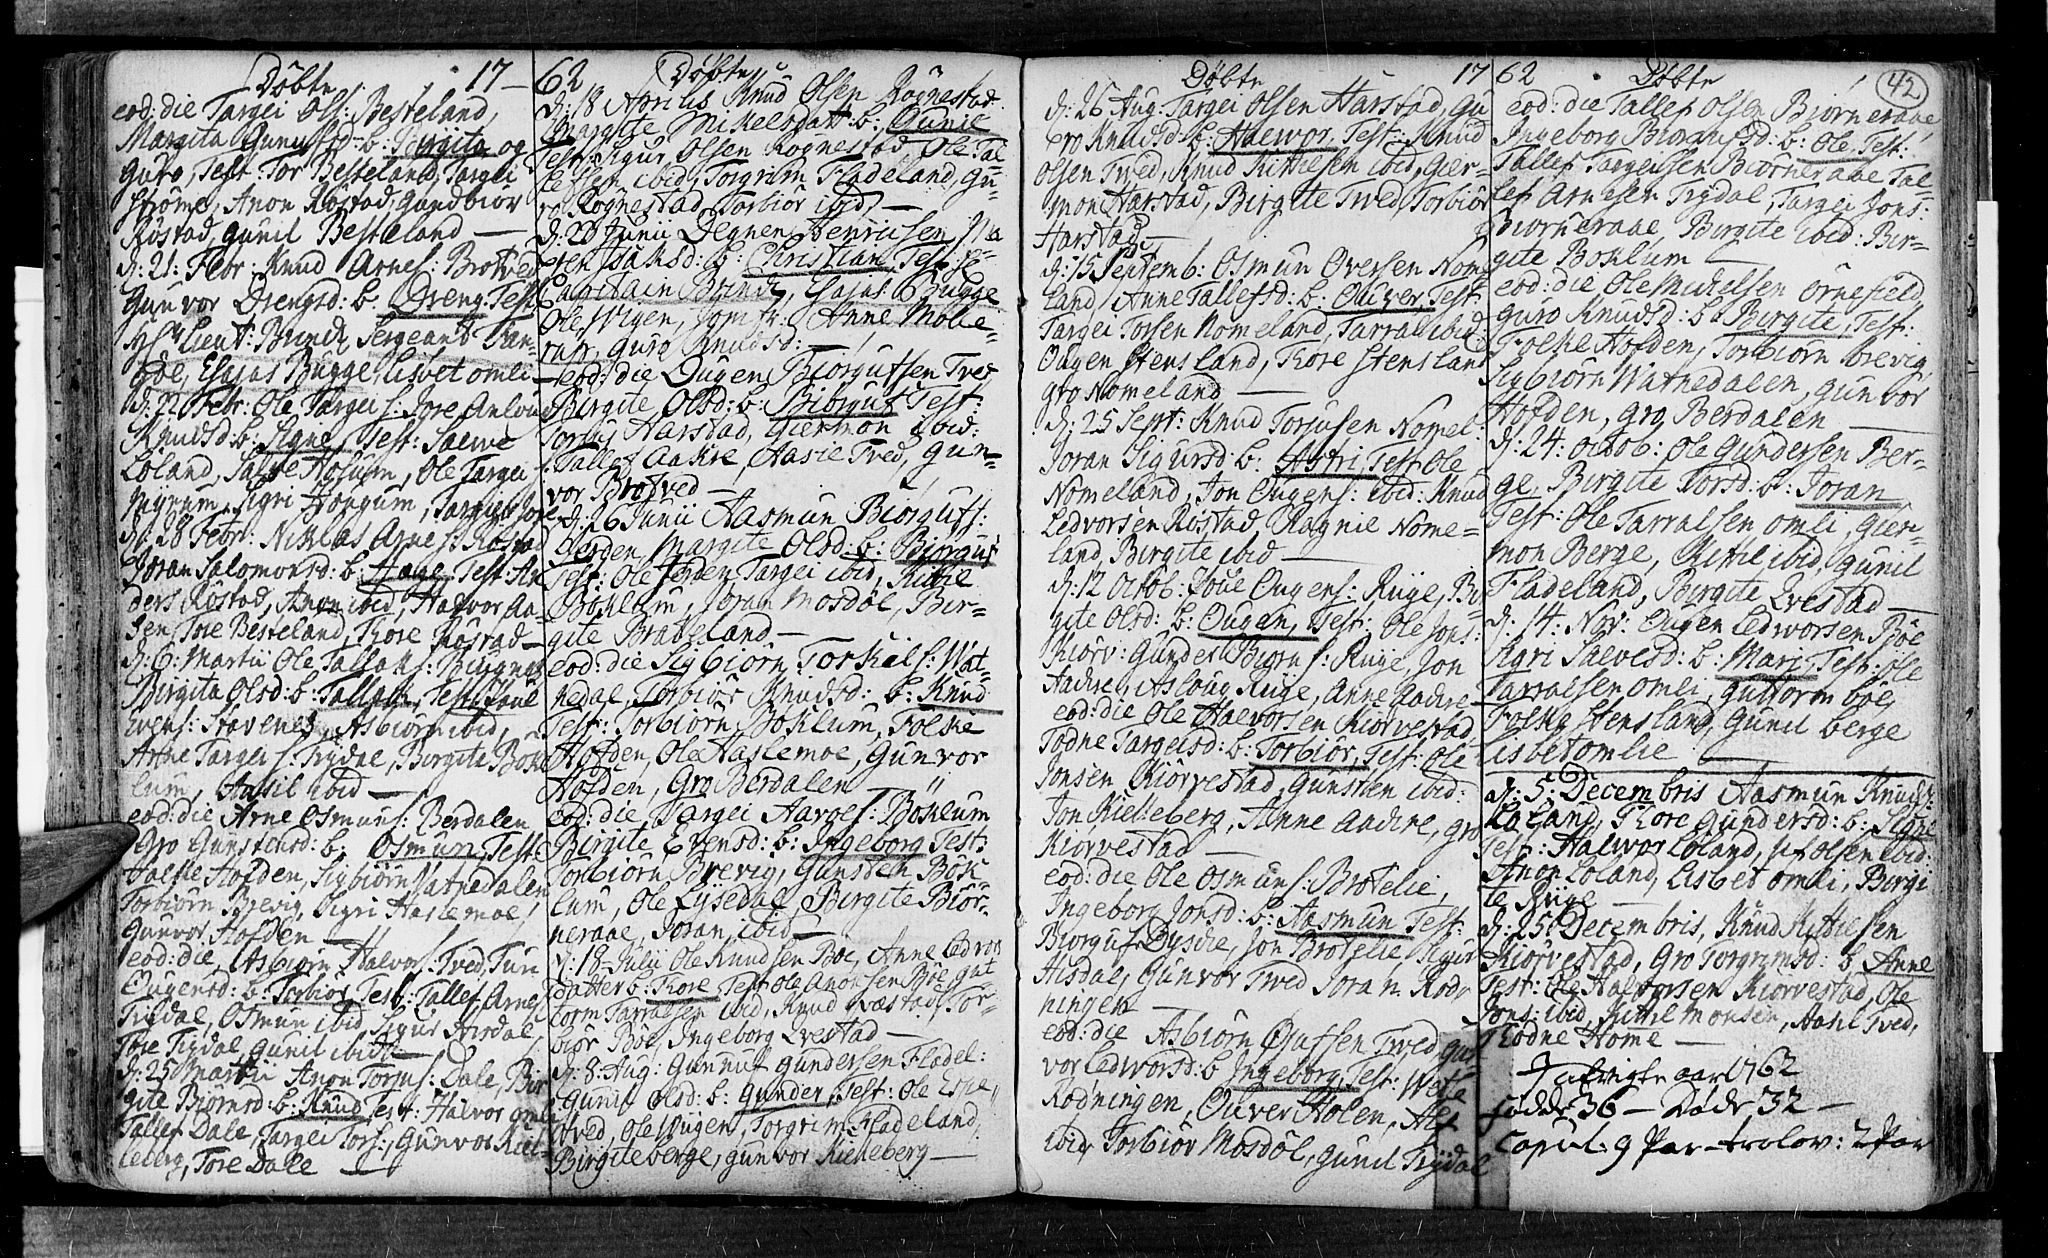 Döbte 17
eod: die Targei Ols: Besteland,
Margita Gunufsd: b: Birgita og
Guro, Test: Tor Besteland, Targei
Hröme, Anon Röstad, Gundbior
Röstad, Gunil Besteland —
d: 21: Febr: Knud Arnes: Brotved
Gunvor Drengsd: b: Dreng. Test:
Hr Lieut: Brindt, Sergeant
Esaias Bugge, Lisbet omli —
d: 22 Febr: Ole Targeis: Tore
Knudsd: b: Signe, Test: Salve
Loland, Salve Hosum, Ole Targei
Sigri Hongum, Targei
d: 28 Febr: Niklas Arnes: Röstad
Joran Salomonsd: b: Aage, Test: An
ders Röstad, Anon ibid, Halvor Aa
gen, Tore Besteland, Thore Röstad —
d: 6: Martii Ole Tallaks:
Birgita Olsd: b: Tallak, Test:
Evens: Stavenes, Asbiörn ibid,
Arne Targeis: Trydal, Birgite Bök
lum, Aasil ibid —
eod: die Arne Osmuns: Berdalen
Gro Gunstensd: b: Osmun, Test:
Falke Hofden, Sigbiörn Vatnedalen
Torbiörn Brevig, Sigri Haslemoe,
Gunvor Hofden —
eod: die, Asbiörn Halvors: Tved, Turi
Eugensd: b: Torbiör, Test: Tallef Arnes
Trydal, Osmun ibid, Sigur Hisdal,
Tore Trydal, Gunil ibid —
d: 25 Martii Anon Torjus: Dale, Bir
gite Biörnsd: b: Knud, Test: Halvor omli
Tallef Dale, Targei Tors: Gunvor Kiel-
leberg, Tore Dale —
62 Döbte
d: 18 Aprilis Knud Olsen Rögnestad
Margite Mikelsdatt: b: Gunil
Test: Sigur Olsen Rognestad, Ole Tal
lefsen ibid, Torgrim Fladeland, Gu
ro Rögnestad, Torbiör ibid —
d: 23 Junii Degnen Henriksen
b: Christian Test:
Capitain Brindt, Esaias Bugge
Ole Wigen, Jomfr: Anne Molle-
rup, Guro Knudsd: —
eod: die Ougen Biorgufsen Tved
Birgite Olsd: b: Bibrguf Test:
Torjus Harstad, Giermon ibid:
Tallef Aakre, Aasie Tved, Gun-
vor Brotved —
d: 26 Junii Aasmun Biorgufs:
Herden, Margite Olsd: b: Biorguf
Test: Ole Herden, Targei ibid, Kittil
Böklum, Joran Mosdöl, Bir-
gite Brabeland —
eod: die Sigbiörn Torkils: Wat-
nedal, Torbiör Knudsd: b: Knud
Test: Torbiörn Boklum, Folke
Hofden, Ole Haslemoe, Gunvor
Hofden, Gro Berdalen —
eod: die Targei Aarges: Böklum
Birgite Evensd: b: Ingeborg Test:
Torbiörn Brevig, Gunsten Bök
lum, Ole Lysedal, Birgite Biör-
neraae, Joran ibid —
d: 18 Julii Ole Knudsen Böe, Anne Ledvors
datter b: Thore Test: Ole Anonsen Böe, Gut
torm Tarralsen ibid, Knud Qvæstad, Tor-
biör Böe, Ingeborg Qvestad —
d: 8: Aug: Gunnuf Gundersen Fladel:
Gunil Olsd: b: Gunder, Test: Ole Espe
tved, Ole Wigen, Torgrim Fladeland,
Birgite berge, Gunvor Kielleberg —
Döbte 17
d: 26 Aug: Targei Olsen Harstad, Gu
Gro Knudsd: b: Halvor, Test: Knud
Olsen Tved, Knud Kittilsen ibid, Gier-
mon Harstad, Birgite Tved, Torbiör
Harstad —
d: 15 Septemb: Osmun Oversen Nome
land, Anne Tallefsd: b: Ouver, Test:
Targei Torsen Nomeland, Tarral ibid:
Ougen Stensland, Thore Stensland
Gro Nomeland —
d: 25 Sept: Knud Torjusen Nomel:
Joran Sigursd: b: Astri, Test: Ole
Nomeland, Jon Ougens: ibid: Knud
Ledvorsen Röstad, Ragnil Nome-
land, Birgite ibid —
d: 12 Octob: Ougens: Ruge, Bir
gite Olsd: b: Ougen, Test: Ole Jons:
Kiörv: Gunder Biörns: Ruge, Jon
Aadne, Aslaug Ruge, Anne Aadne —
eod: die Ole Halvorsen Kiörvestad
Todne Targeisd: b: Torbiör, Test: Ole
Jonsen Kiörvestad, Gunsten ibid:
Jon Kielleberg, Anne Aadne, Gro
Kiörvestad —
eod: die Ole Osmuns: Brotelie,
Ingeborg Jonsd: b: Aasmun Test:
Biorguf Dysdie, Jon Brotelie, Sigur
Hisdal, Gunvor Tved, Joran Röd-
ningen —
eod: die Asbiörn Ouufsen Tved, Gun
vor Ledvorsd: b: Ingeborg, Test:
Rödningen, Ouver Holen, Alf
ibid, Torbiör Mosdöl, Gunil Trydal
62 Döbte
42
eod: die Tallef Olsen Biörneraae
Ingeborg Biörnufsd: b: Ole, Test:
Tallef Targeisen Biörneraae, Tal-
lef Arnesen Trydal, Targei Jons:
Biörneraae, Birgite ibid: Bir-
gite Boklum —
eod: die Ole Mickelsen Örnefield,
Guro Knudsd: b: Birgite, Test:
Folke Hofden, Torbiörn brevig,
Sigbiörn Wathnedalen, Gunvor
Hofden, Gro Berdalen —
d: 24: octob: Ole Gundersen Ber-
ge, Birgite Torsd: b: Joran
Test: Ole Tarralsen omli, Gier-
mon Berge, Kittil ibid, Gunil
Fladeland, Birgite Qvestad —
d: 14: Nov: Eugen Ledvorsen Böe
Sigri Salvesd: b: Mari, Test: Ole
Tarralsen omli, Guttorm böe,
Folke Stensland, Gunil berge
Lisbet omlie —
d: 5: Decembris Aasmun Knuds:
Loland, Thore Gundersd: b: Signe
Test: Halvor Loland, Olsen ibid:
Anon Loland, Lisbet omli, Birgi
te Ruge —
d: 25 Decembris, Knud Kittilsen
Kiörvestad, Gro Torgrimsd: b: Anne
Test: Ole Halvorsen Kiörvestad, Ole
Jons: ibid, Kittil Monsen, Aasil Tved,
Todne Home —
I afvigte aar 1762
födde 36 — Döde 32 —
Copul: 9 Par — trolov: 2 Par